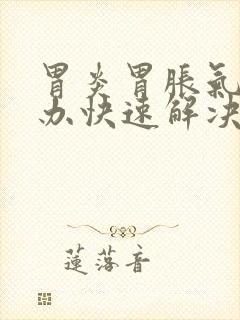 胃炎胃脹氣
办快速解决
蓮落音